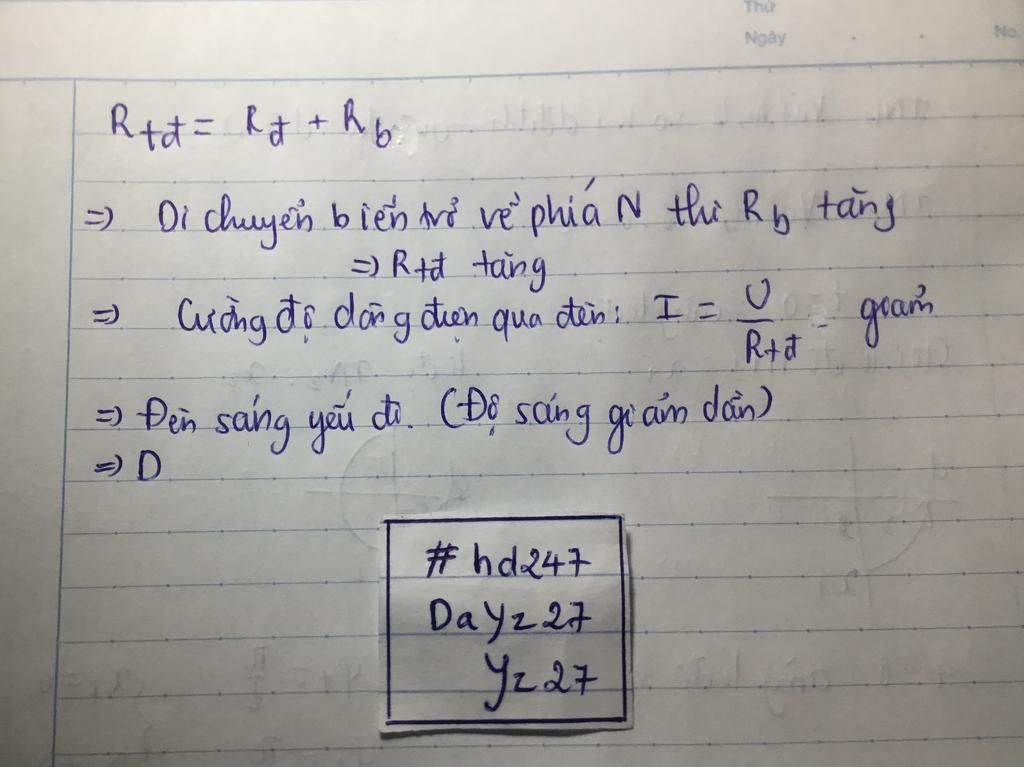 Thứ
Ngày
No.
Rtđ = Rđ + Rb
=> Di chuyển biến trở về phiá N thì Rb tăng
=> Rtđ tăng
=> Cường độ dòng điện qua đèn: I = U / Rtđ = giảm
=> Đèn sáng yếu đi. (Độ sáng giảm dần)
=> D
# hd247
DaYz27
Yz27